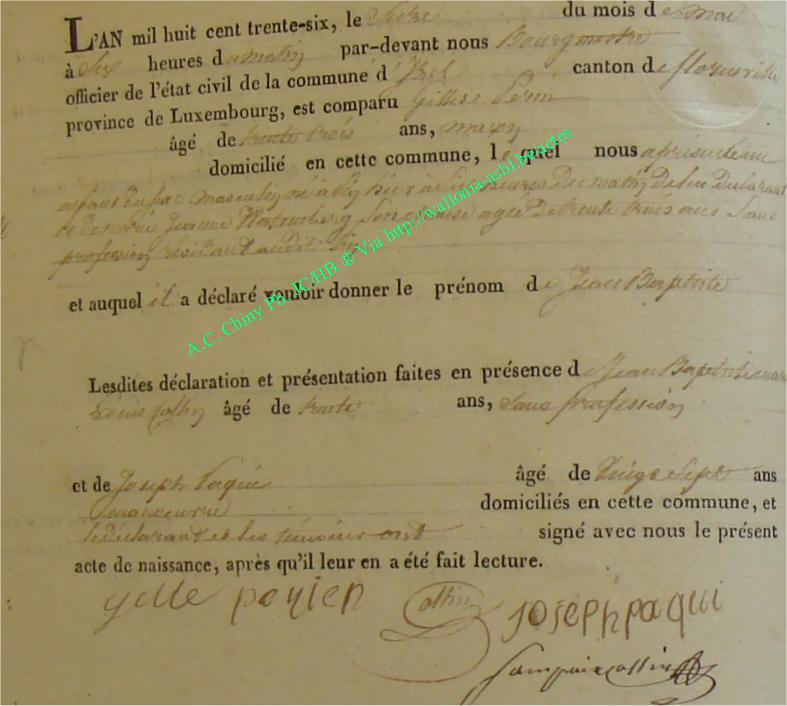 L'AN mil huit cent trente-six, le seize du mois de mai
à dix heures du matin par-devant nous Bourgmestre
officier de l'état civil de la commune d'Izel canton de florenville
province de Luxembourg, est comparu Gilles
âgé de trente trois ans, maçon
domicilié en cette commune, lequel nous a présenté un
enfant du sexe masculin né à hier à heures du matin de lui déclarant
et de marie Jeanne son épouse agée de trente trois ans Sans
profession résidant audit
et auquel il a déclaré vouloir donner le prénom de Jean Baptiste
Lesdites déclaration et présentation faites en présence de Jean Baptiste
Louis Collin âgé de trente ans, Sans profession
et de Joseph Paqui âgé de vingt Sept ans
manoeuvre domiciliés en cette commune, et
le déclarant et les témoins ont signé avec nous le présent
acte de naissance, après qu'il leur en a été fait lecture.
gille Collin Joseph paqui
A.C. Chiny Ph. JC.HB ® Via http://wallonia-asbl.be/actes